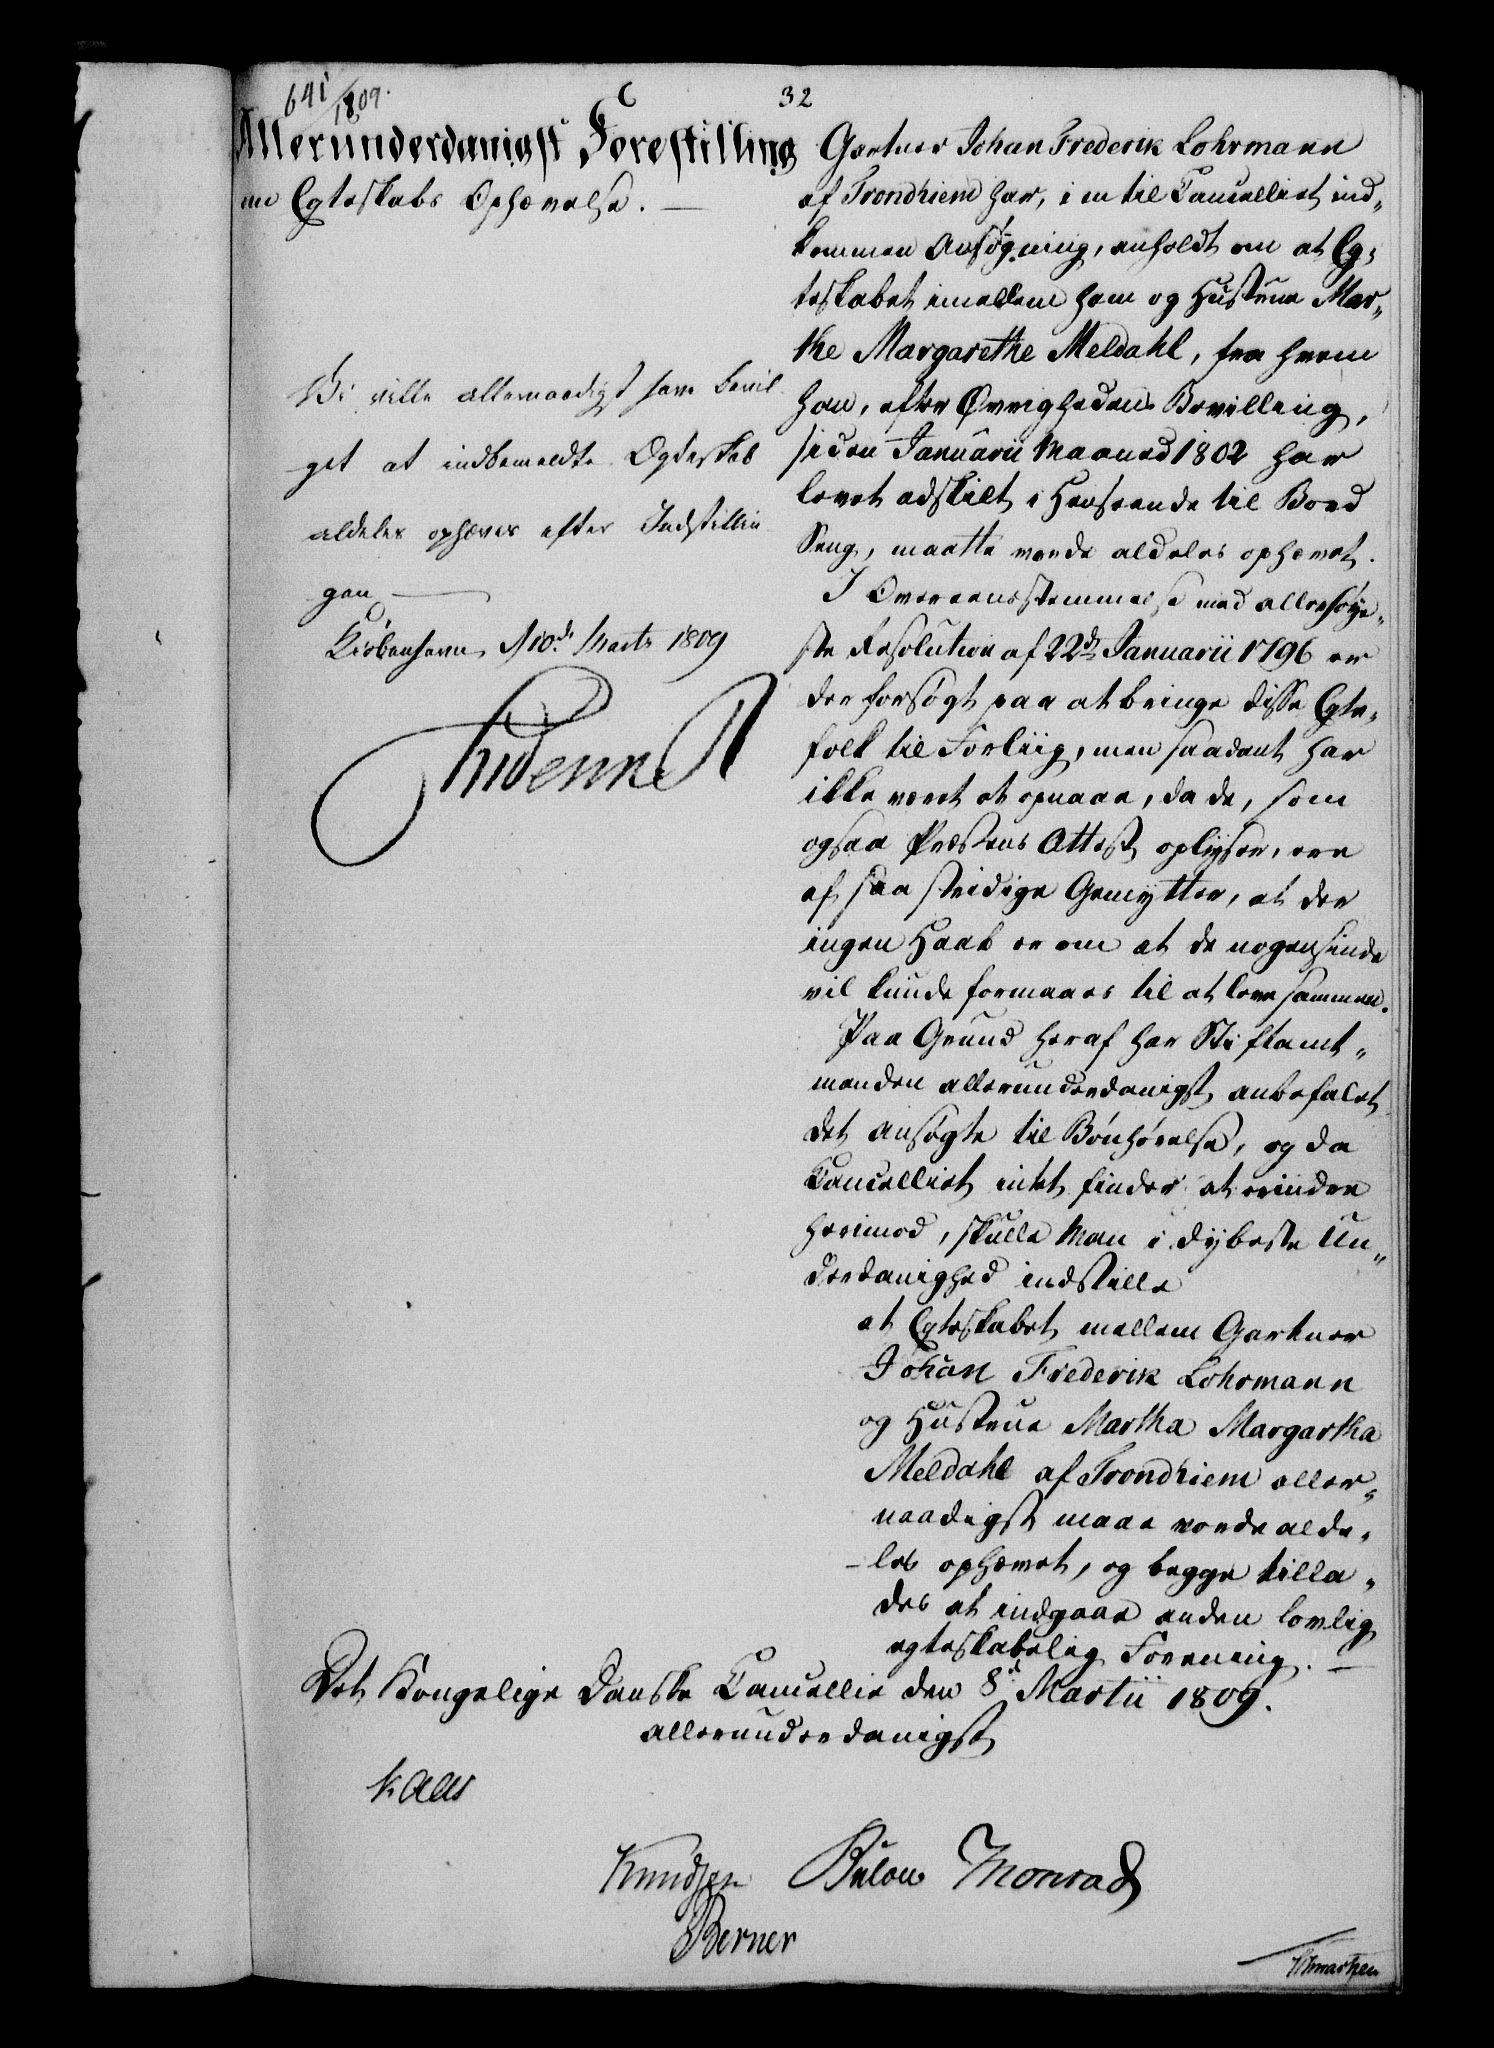 641/1809.
32
Allerunderdanigst Forestilling
om Egteskabs Ophævelse. —
Vi ville allernaadigst have bevil
get at indbemeldte Egteskab
aldeles ophæves efter Indstillin
gen —
Kiöbenhavn d 10de Marts 1809
Frideric R
Gartner Johan Frederik Lohrmann
af Trondhiem har, i en til Cancelliet ind„
kommen Ansøgning, anholdt om at Eg„
teskabet imellem ham og Hustrue Mar„
the Margarethe Meldahl, fra hvem
han, efter Øvrighedens Bevilling,
siden Januarii Maaned 1802 har
levet adskilt i Henseende til Bord
Seng, maatte vorde aldeles ophævet.
I Overeensstemmelse med allerhøye„
ste Resolution af 22de Januarii 1796 er
der forsøgt paa at bringe disse Egte„
folk til Forliig, men saadant har
ikke været at opnaae, da de, som
ogsaa Præstens Attest oplyser, ere
af saa stridige Gemytter, at der
ingen Haab er om at de nogensinde
vil kunde formaaes til at leve sammen.
Paa Grund heraf har Stiftamt„
manden allerunderdanigst anbefalet
det Ansøgte til Bönhørelse, og da
Cancelliet intet finder at erindre
herimod, skulle Man i dybeste Un„
derdanighed indstille
at Egteskabet mellem Gartner
Johan Frederik Lohrmann
og Hustrue Martha Margartha
Meldahl af Trondhiem aller„
naadigst maae vorde alde„
les ophævet, og begge tilla„
des at indgaae anden lovlig
egteskabelig Forening. —
Det Kongelige Danske Cancellie den 8de Martii 1809.
allerunderdanigst
Kaas
Knudsen Bülow Monrad
Berner